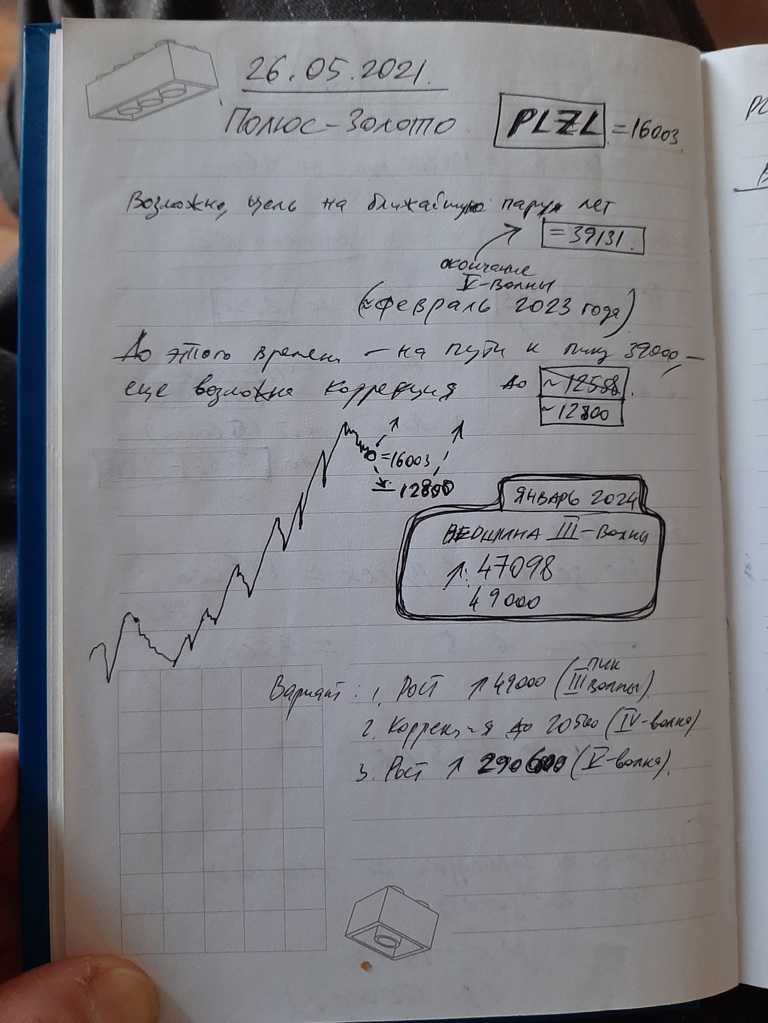 26.05.2021.
Полюс-Золото PLZL =16003.
Возможно, цель на ближайшую пару лет
=39131.
окончание
V-волны
(≈февраль 2023 года)
До этого времени – на пути к пику 39000, –
еще возможна коррекция до ~12558.
~12800
=16003
12800
ЯНВАРЬ 2024
ВЕРШИНА III-волны
↑: 47098
49000
Вариант: 1. Рост ↑49000 (пик III волны)
2. Коррекция до 20500 (IV-волна)
3. Рост ↑ 290600 (V-волна).